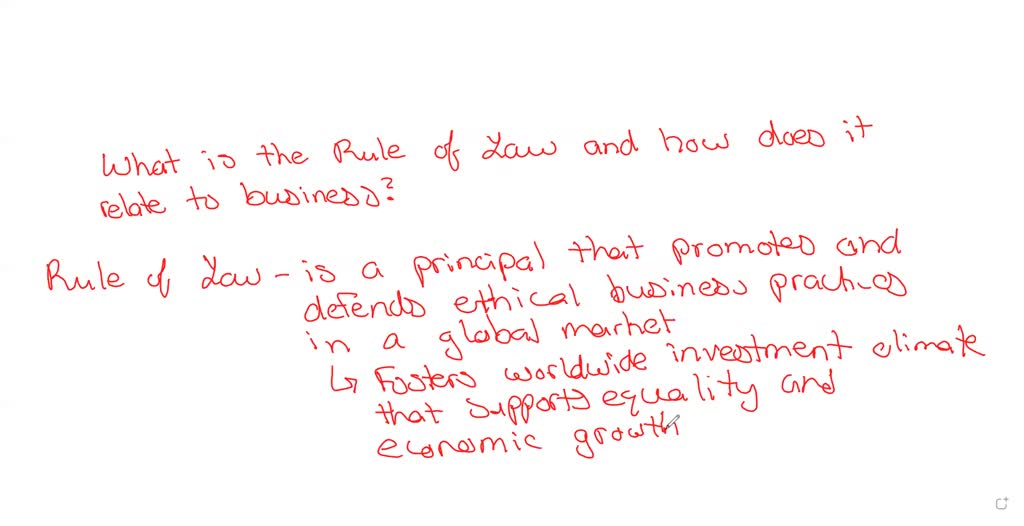 What is the Rule of Law and how does it
relate to business?
Rule of Law - is a principal that promotes and
defends ethical business practices
in a global market
↳ Fosters worldwide investment climate
that supports equality and
economic growth